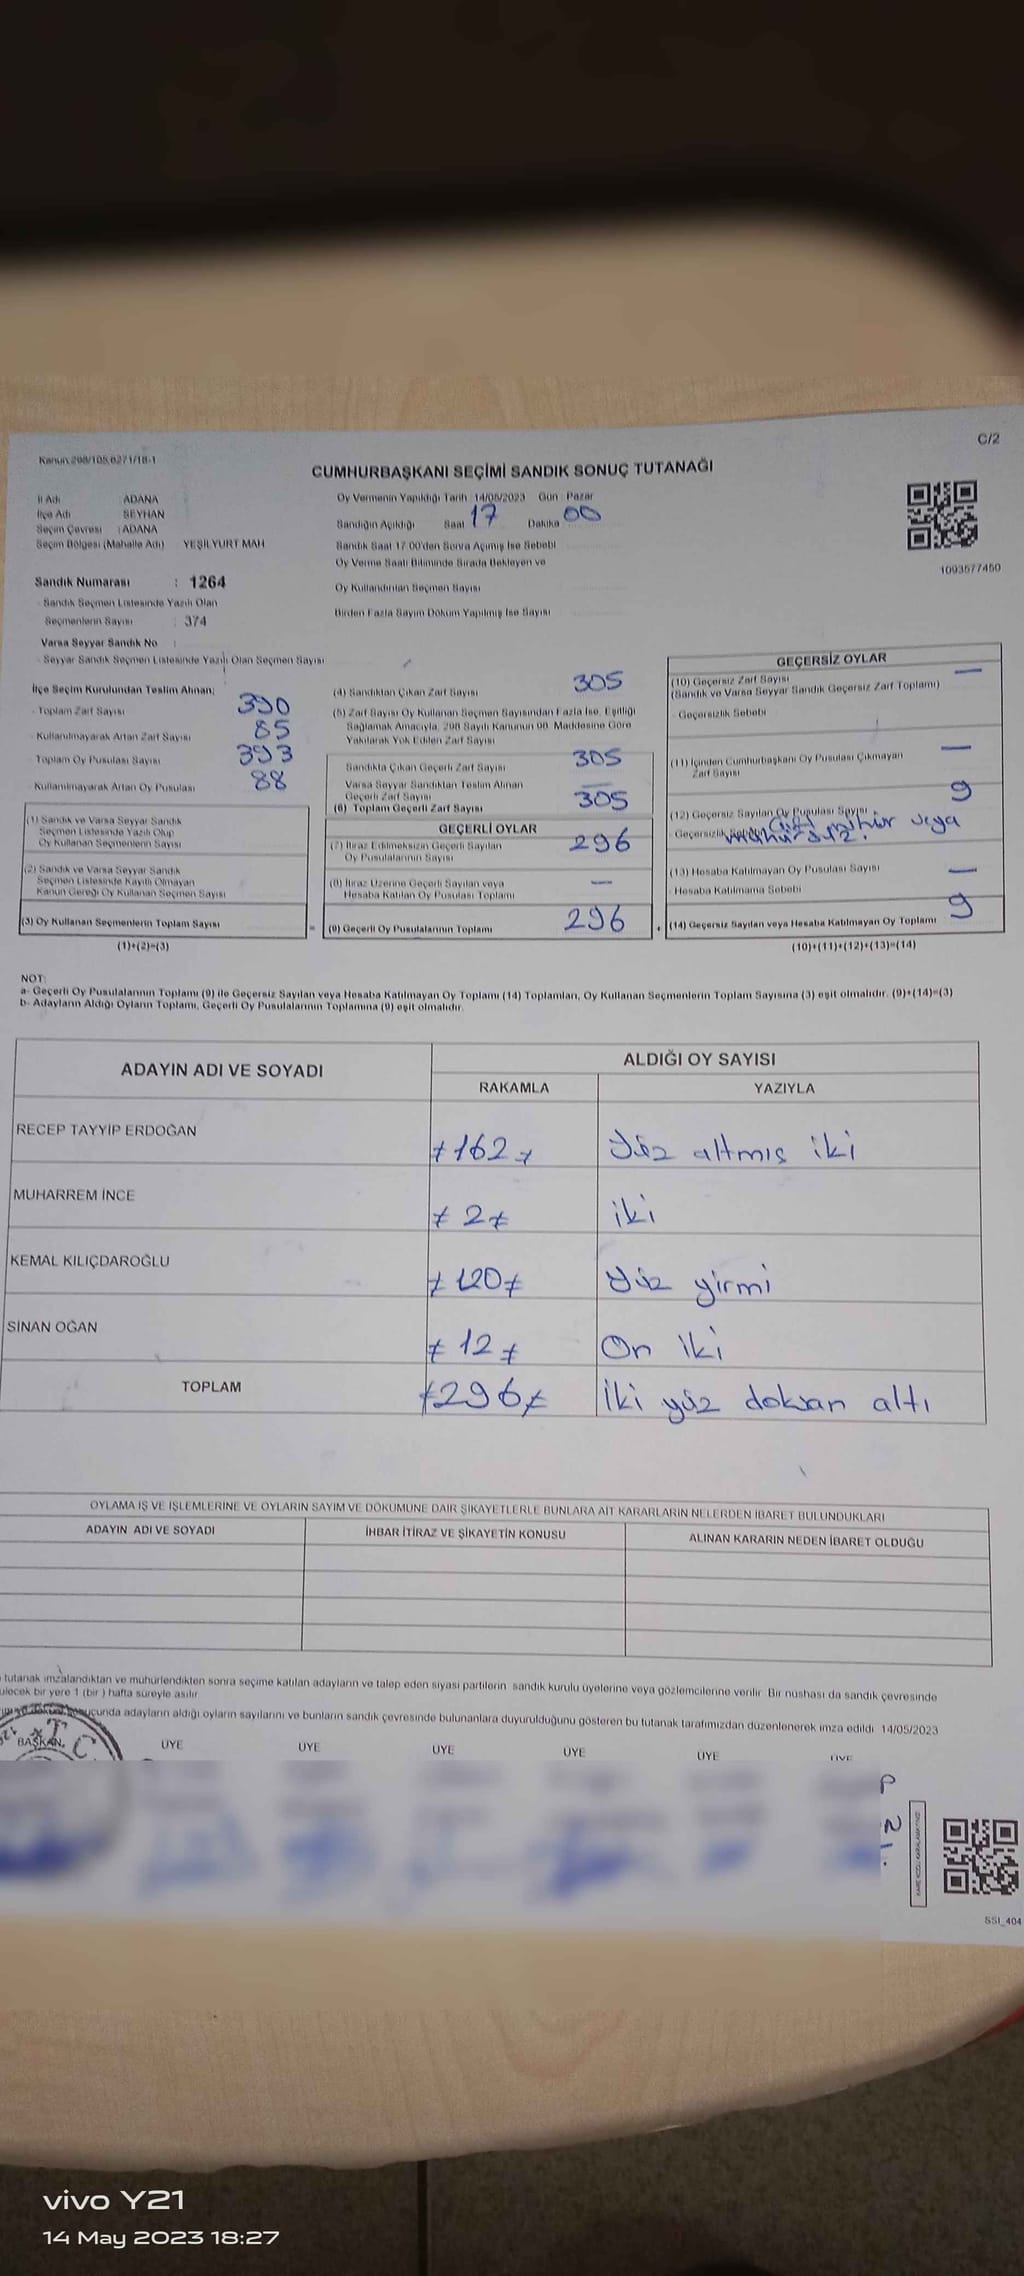 C/2
Kanun:298/105,6271/18-1
CUMHURBAŞKANI SEÇİMİ SANDIK SONUÇ TUTANAĞI
İl Adı : ADANA
İlçe Adı : SEYHAN
Seçim Çevresi : ADANA
Seçim Bölgesi (Mahalle Adı) YEŞİLYURT MAH
Sandık Numarası : 1264
Sandık Seçmen Listesinde Yazılı Olan
Seçmenlerin Sayısı : 374
Varsa Seyyar Sandık No :
- Seyyar Sandık Seçmen Listesinde Yazılı Olan Seçmen Sayısı
Oy Vermenin Yapıldığı Tarih 14/05/2023 Gün : Pazar
Sandığın Açıldığı Saat 17 Dakika 00
Sandık Saat 17:00'den Sonra Açılmış İse Sebebi
Oy Verme Saati Bitiminde Sırada Bekleyen ve
Oy Kullandırılan Seçmen Sayısı
Birden Fazla Sayım Döküm Yapılmış İse Sayısı
1093577450
İlçe Seçim Kurulundan Teslim Alınan;
- Toplam Zarf Sayısı 390
- Kullanılmayarak Artan Zarf Sayısı 85
- Toplam Oy Pusulası Sayısı 393
- Kullanılmayarak Artan Oy Pusulası 88
(1) Sandık ve Varsa Seyyar Sandık
Seçmen Listesinde Yazılı Olup
Oy Kullanan Seçmenlerin Sayısı
(2) Sandık ve Varsa Seyyar Sandık
Seçmen Listesinde Kayıtlı Olmayan
Kanun Gereği Oy Kullanan Seçmen Sayısı
(3) Oy Kullanan Seçmenlerin Toplam Sayısı
(1)+(2)=(3)
(4) Sandıktan Çıkan Zarf Sayısı 305
(5) Zarf Sayısı Oy Kullanan Seçmen Sayısından Fazla İse, Eşitliği
Sağlamak Amacıyla, 298 Sayılı Kanunun 98. Maddesine Göre
Yakılarak Yok Edilen Zarf Sayısı
Sandıkta Çıkan Geçerli Zarf Sayısı 305
Varsa Seyyar Sandıktan Teslim Alınan
Geçerli Zarf Sayısı —
(6) Toplam Geçerli Zarf Sayısı 305
GEÇERLİ OYLAR
(7) İtiraz Edilmeksizin Geçerli Sayılan
Oy Pusulalarının Sayısı 296
(8) İtiraz Üzerine Geçerli Sayılan veya
Hesaba Katılan Oy Pusulası Toplamı —
(9) Geçerli Oy Pusulalarının Toplamı 296
GEÇERSİZ OYLAR
(10) Geçersiz Zarf Sayısı —
(Sandık ve Varsa Seyyar Sandık Geçersiz Zarf Toplamı)
- Geçersizlik Sebebi
(11) İçinden Cumhurbaşkanı Oy Pusulası Çıkmayan —
Zarf Sayısı
(12) Geçersiz Sayılan Oy Pusulası Sayısı 9
- Geçersizlik Sebebi Çift mühür veya
mühürsüz.
(13) Hesaba Katılmayan Oy Pusulası Sayısı —
- Hesaba Katılmama Sebebi
(14) Geçersiz Sayılan veya Hesaba Katılmayan Oy Toplamı 9
(10)+(11)+(12)+(13)=(14)
NOT:
a- Geçerli Oy Pusulalarının Toplamı (9) ile Geçersiz Sayılan veya Hesaba Katılmayan Oy Toplamı (14) Toplamları, Oy Kullanan Seçmenlerin Toplam Sayısına (3) eşit olmalıdır. (9)+(14)=(3)
b- Adayların Aldığı Oyların Toplamı, Geçerli Oy Pusulalarının Toplamına (9) eşit olmalıdır.
ADAYIN ADI VE SOYADI ALDIĞI OY SAYISI
RAKAMLA YAZIYLA
RECEP TAYYİP ERDOĞAN 162 Yüz altmış iki
MUHARREM İNCE 2 iki
KEMAL KILIÇDAROĞLU 120 Yüz yirmi
SİNAN OĞAN 12 On iki
TOPLAM 296 İki yüz doksan altı
OYLAMA İŞ VE İŞLEMLERİNE VE OYLARIN SAYIM VE DÖKÜMÜNE DAİR ŞİKAYETLERLE BUNLARA AİT KARARLARIN NELERDEN İBARET BULUNDUKLARI
ADAYIN ADI VE SOYADI İHBAR İTİRAZ VE ŞİKAYETİN KONUSU ALINAN KARARIN NEDEN İBARET OLDUĞU
tutanak imzalandıktan ve mühürlendikten sonra seçime katılan adayların ve talep eden siyasi partilerin sandık kurulu üyelerine veya gözlemcilerine verilir. Bir nüshası da sandık çevresinde
bir yere 1 (bir) hafta süreyle asılır
adayların aldığı oyların sayılarını ve bunların sandık çevresinde bulunanlara duyurulduğunu gösteren bu tutanak tarafımızdan düzenlenerek imza edildi 14/05/2023
BAŞKAN ÜYE ÜYE ÜYE ÜYE ÜYE ÜYE
T.C
SSI_404
vivo Y21
14 May 2023 18:27